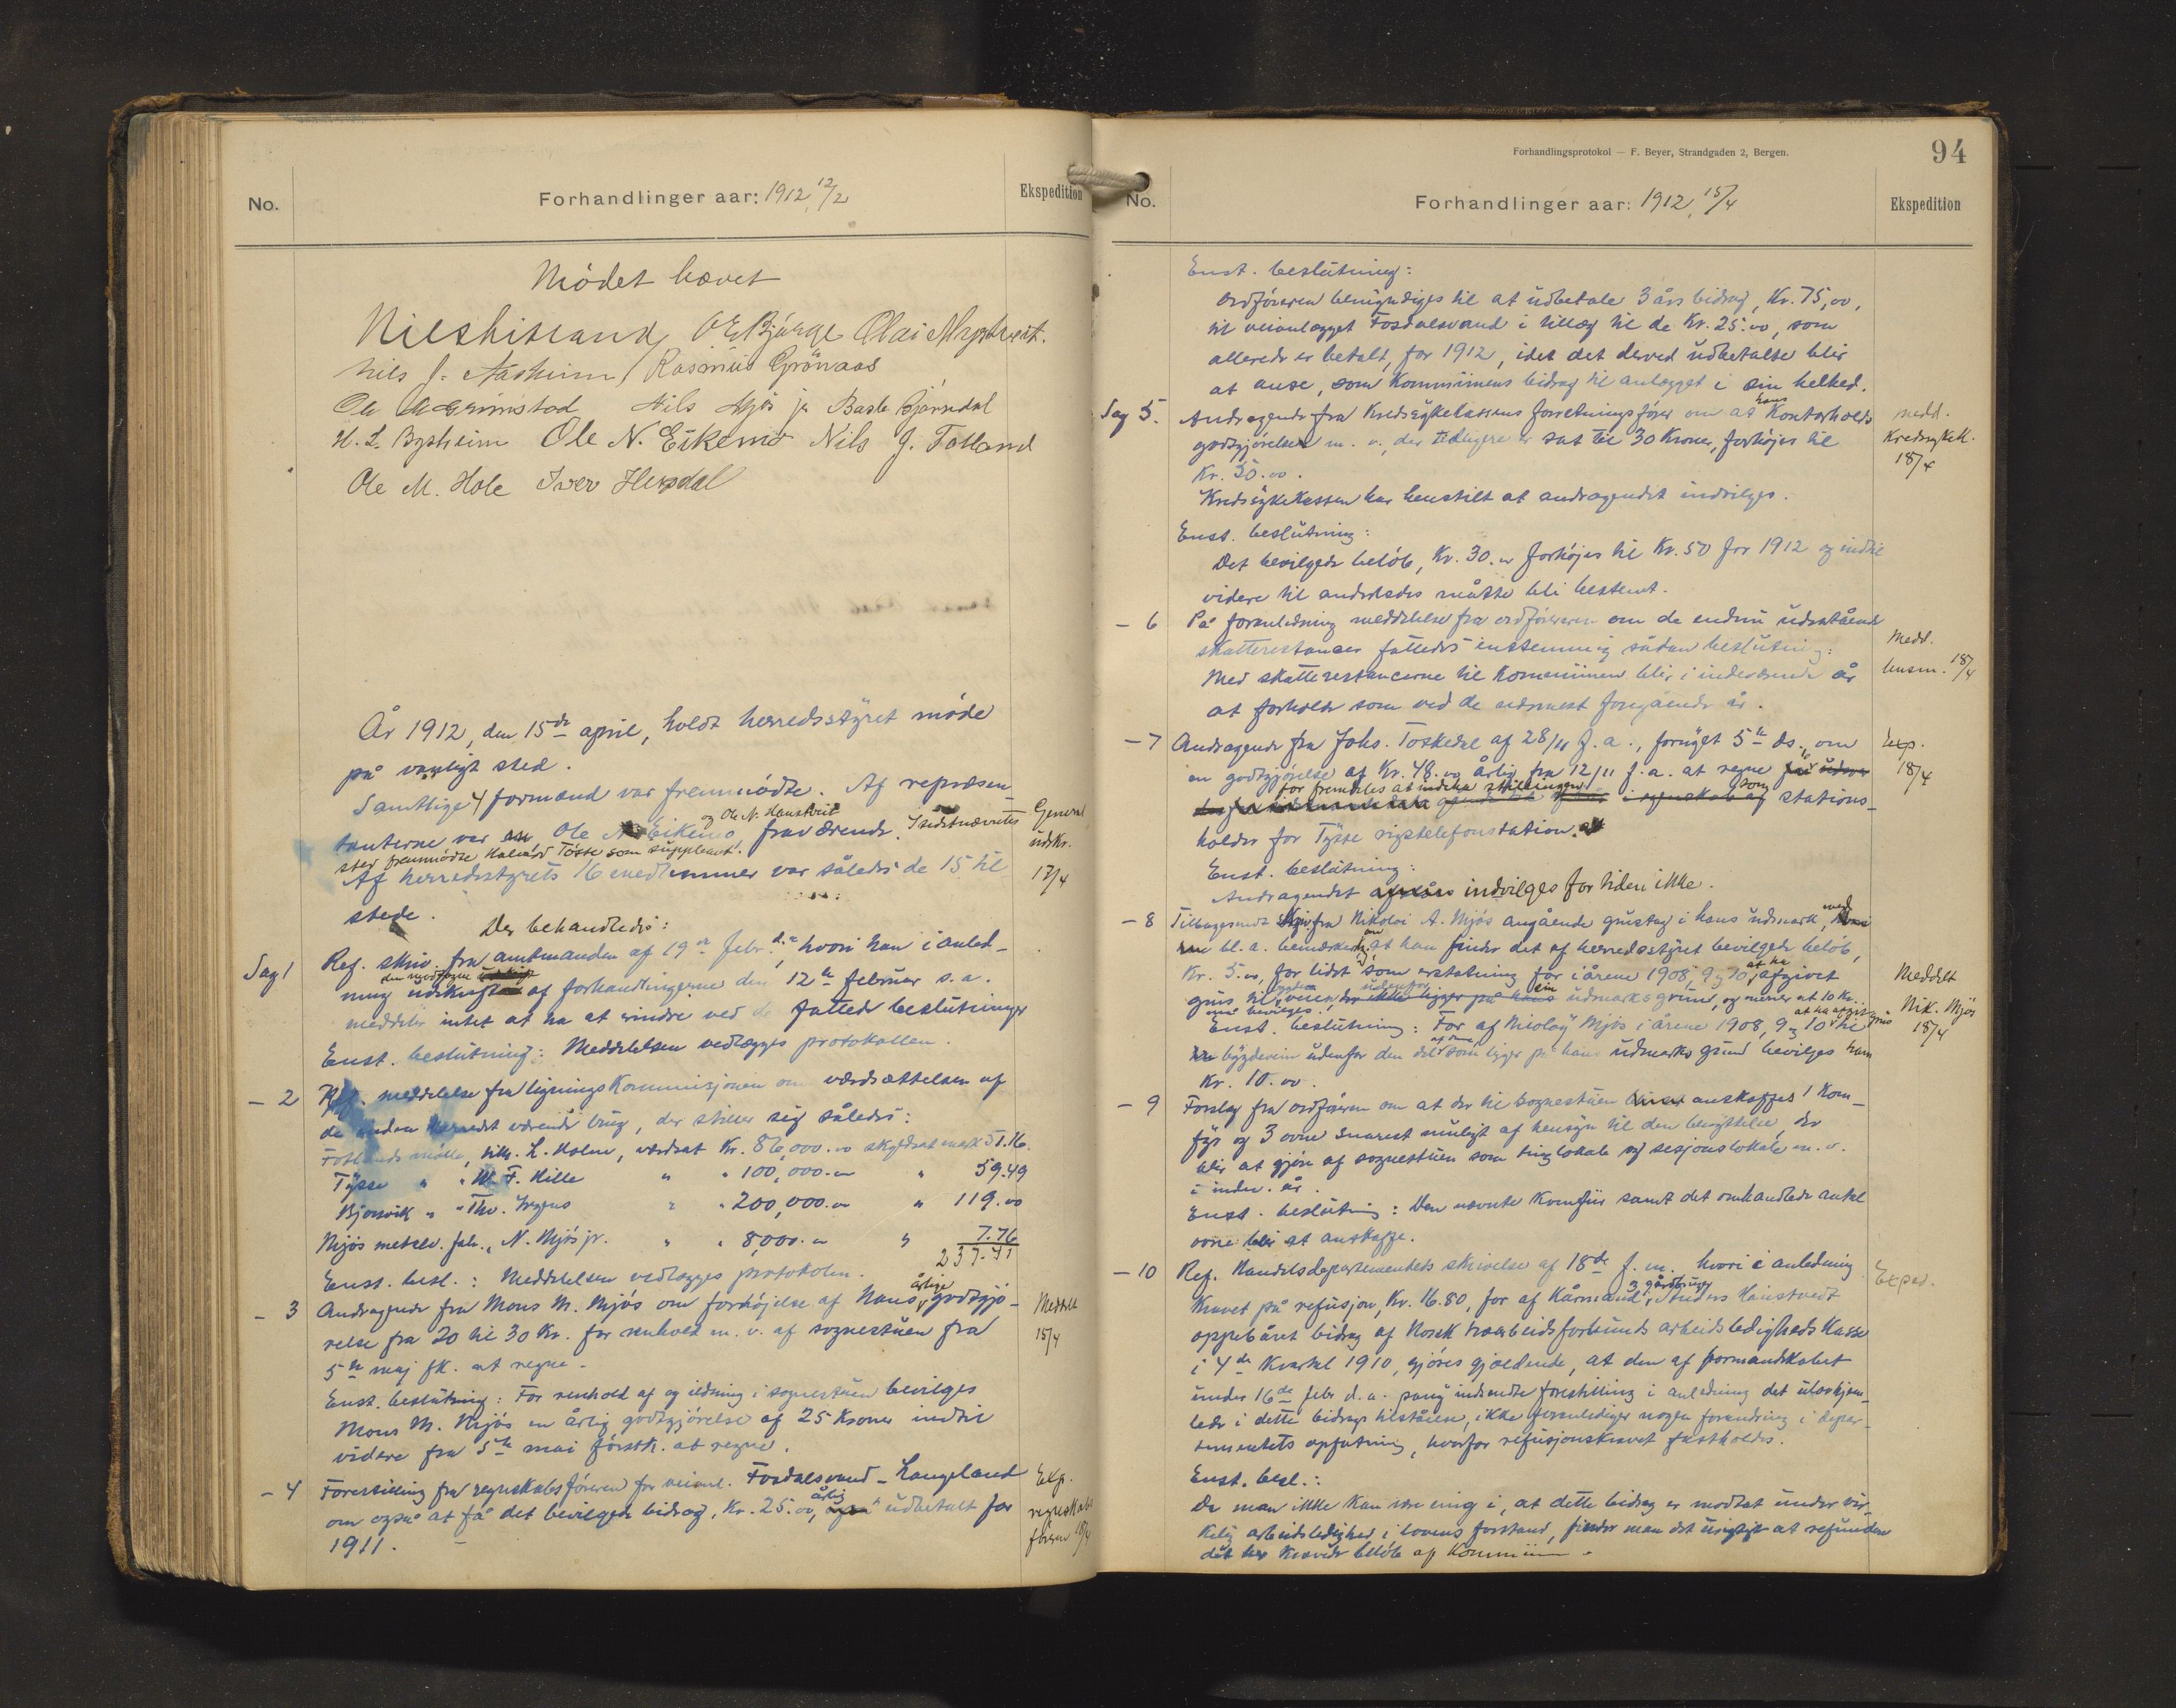 No.
Forhandlinger aar: 1912, 12/2
Ekspedition
Mödet hævet
Nils Hisland O E Bjørge Olai Myrdtveit.
Nils J. Aasheim Rasmus Grönaas
Ole A Grimstad Nils Mjös jr Baste Bjørndal
H. L. Bysheim Ole N. Eikemo Nils J. Fotland
Ole M. Hole Iver Herfindal
År 1912, den 15de april, holdt herredsstyret möde
på vanligt sted.
Samtlige 4 formænd var fremmödte. Af repræsen-
og Ole N. Hanstveit
tanterne var Ole N. Eikemo fraværende. I sidstnævntes
sted fremmödte Halvård Tösse som suppleant.
Af herredsstyrets 16 medlemmer var således de 15 til
stede.
General
udskr.
17/4
Der behandledes:
Sag 1 Ref. skriv. fra amtmanden af 19de febr. d.a., hvori han i anled-
den medfølgende
ning udskrift af forhandlingerne den 12te februar s. a.
meddeler intet at ha at erindre ved de fattede beslutninger
Enst. beslutning: Meddelelsen vedlægges protokollen.
– 2 Ref. meddelelse fra ligningskommisjonen om værdsættelsen af
de inden herredet værende brug, der stiller sig således:
Fotlands mölle, tilh. L. Holm, værdsat Kr. 86,000.00 skyldsat mark 51.16.
Tysse " " M. F. Hille " " 100,000.00 " 59.49
Bjørsvik " " Thv. Irgens " " 200,000.00 " 119.00
Mjös metalv. fab. " N. Mjös jr. " " 8,000.00 " 7.76
237.41
Enst. besl.: Meddelelsen vedlægges protokolen.
årlige
– 3 Andragende fra Mons M. Mjös om forhöjelse af Hans godtgjö-
relse fra 20 til 30 Kr. for renhold m. v. af sognestuen fra
5te maj fk. at regne.
Meddelt
15/4
Enst. beslutning: For renhold af og ildning i sognestuen bevilges
Mons M. Mjös en årlig godtgjörelse af 25 Kroner indtil
videre fra 5te mai förstk. at regne.
– 4 Forestilling fra regnskabsföreren for veianl. Fosdalsvand – Langeland
årlig
om også at få det bevilgede bidrag, Kr. 25.00, udbetalt for
1911.
Exp.
regnskabs
föreren 18/4
Forhandlingsprotokol — F. Beyer, Strandgaden 2, Bergen.
94
No.
Forhandlinger aar: 1912, 15/4
Ekspedition
Enst. beslutning:
Ordföreren bemyndiges til at udbetale 3 års bidrag, Kr. 75,00,
til veianlægget Fosdalsvand i tillæg til de Kr. 25.00, som
allerede er betalt, for 1912, idet det derved udbetalte blir
at anse, som Kommunens bidrag til anlægget i sin helhed.
hans
Sag 5. Andragende fra Kredssykekassens forretningsförer om at Kontorholds
godtgjörelsen m. v., der tidligere er sat til 30 Kroner, forhöjes til
Kr. 50.00.
Medd.
Kredssykek.
18/4
Kredssykekassen har henstilt at andragendet indvilges.
Enst. beslutning:
Det bevilgede belöb, Kr. 30.00 forhöjes til Kr. 50 for 1912 og indtil
videre til anderledes måtte bli bestemt.
– 6 På foranledning meddelelse fra ordföreren om de endnu udestående
skatterestancer fattedes enstemmig sådan beslutning:
Med skatterestancerne til Kommunen blir i indeværende år
at forholde som ved de nærmest foregående år.
Medd.
lensm. 18/4
– 7 Andragende fra Johs. Toskedal af 28/11 f. a., fornyet 5te ds., om
en godtgjörelse af Kr. 48.00 årlig fra 12/11 f. a. at regne
for fremdeles at indeha stillingen som
stations-
holder for Tysse rigstelefonstation.
Exp.
18/4
Enst. beslutning:
Andragendet indvilges for tiden ikke.
– 8 Tilbagesendt skriv. fra Nikolai A. Mjös angående grustag i hans udmark, med
bl. a. bemærkning om at han finder det af herredsstyret bevilgede belöb,
at ha
Kr. 5.00, for lidet som erstatning for i årene 1908, 9 og 10 afgivet
grus til veien udenfor sin udmarksgrund, og mener at 10 Kr.
må bevilges.
Meddelt
Nik. Mjös
18/4
at ha afgit grus
Enst. beslutning: For af Nicolay Mjös i årene 1908, 9 og 10 til
bygdeveien udenfor den del af den som ligger på hans udmarks grund bevilges ham
Kr. 10.00.
– 9 Forslag fra ordföreren om at der til sognestuen anskaffes 1 Kom-
fyr og 3 ovne snarest muligt af hensyn til den benyttelse, der
blir at gjöre af sognestuen som tinglokale og sesjonslokale m. v.
i indev. år.
Enst. beslutning: Den nævnte Komfur samt det omhandlede antal
ovne blir at anskaffe.
– 10 Ref. Handelsdepartementets skrivelse af 18de f. m. hvori i anledning
3 gårdbruger
Kravet på refusjon, Kr. 16.80, for af Kårmand Anders Hanstvedt
oppebåret bidrag af Norsk træarbeidsforbunds arbeidsledighedskasse
i 4de Kvartal 1910, gjöres gjældende, at den af formandskabet
under 16de febr d. a. indsendte forestilling i anledning det
i dette bidrags tilståelse, ikke foranlediger nogen forandring i depar-
tementets opfatning, hvorfor refusjonskravet fastholdes.
Exped.
Enst. besl.:
Da man ikke kan være enig i, at dette bidrag er modtat under vir-
kelig arbeidsledighed i lovens forstand, finder man det urigtigt at refundere
det her krævede belöb af Kommunen.